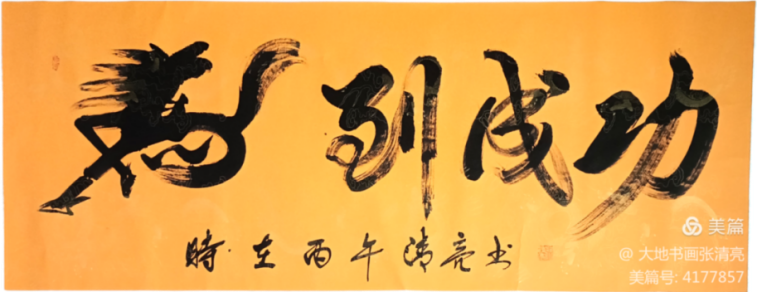 馬到成功
時·在丙午清亮书
美篇
@ 大地书画张清亮
美篇号: 4177857